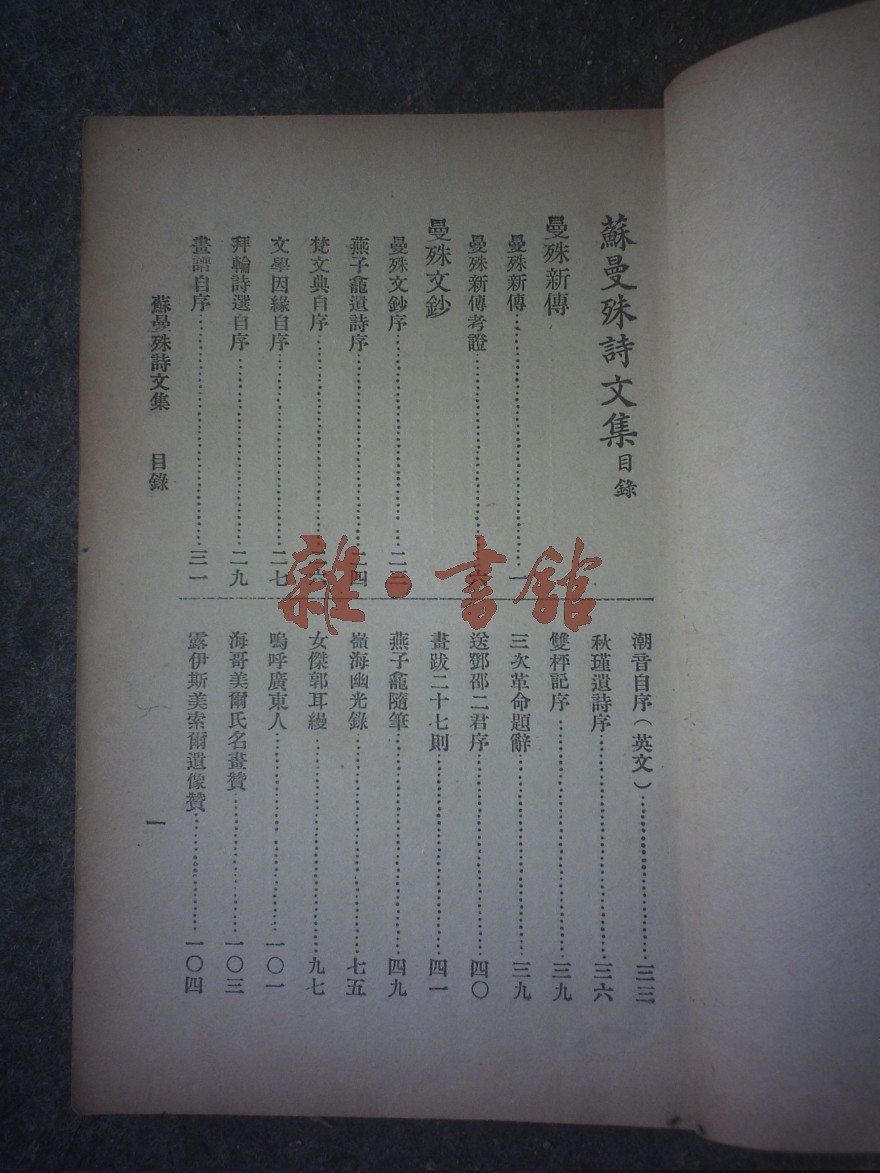 蘇曼殊詩文集目錄
曼殊新傳
曼殊新傳……一
曼殊新傳考證……六
曼殊文鈔
曼殊文鈔序……二三
燕子龕遺詩序……二四
梵文典自序……二六
文學因緣自序……二七
拜輪詩選自序……二九
畫譜自序……三一
潮音自序(英文)……三三
秋瑾遺詩序……三六
雙枰記序……三九
三次革命題辭……三九
送鄧邵二君序……四〇
畫跋二十七則……四一
燕子龕隨筆……四九
嶺海幽光錄……七五
女傑郭耳縵……九七
嗚呼廣東人……一〇一
海哥美爾氏名畫贊……一〇三
露伊斯美索爾遺像贊……一〇四
蘇曼殊詩文集 目錄
一
雜·書館